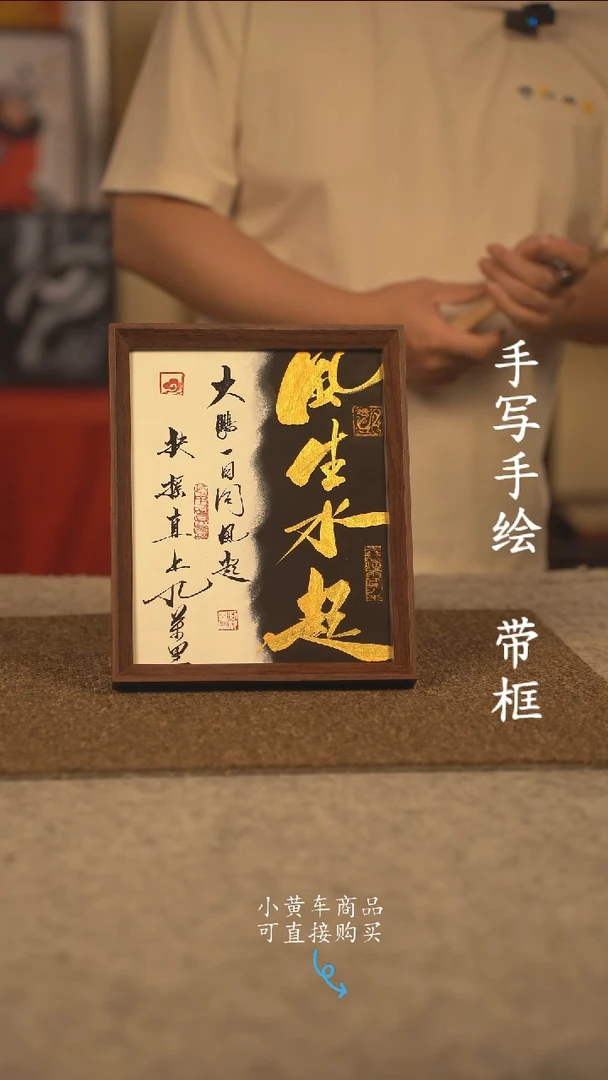 風生水起
大鵬一日同風起
扶搖直上九萬里
手写手绘 带框
小黄车商品
可直接购买